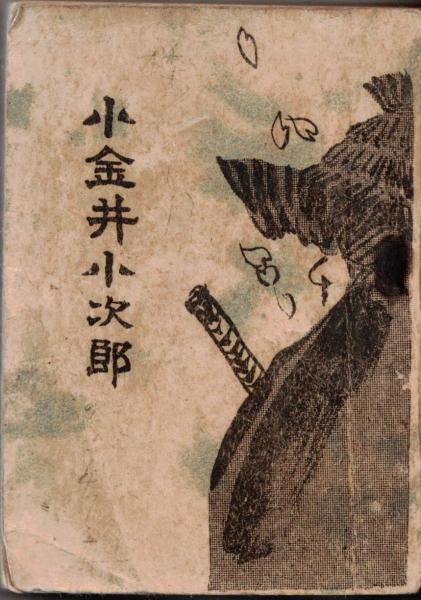 小金井小次郎